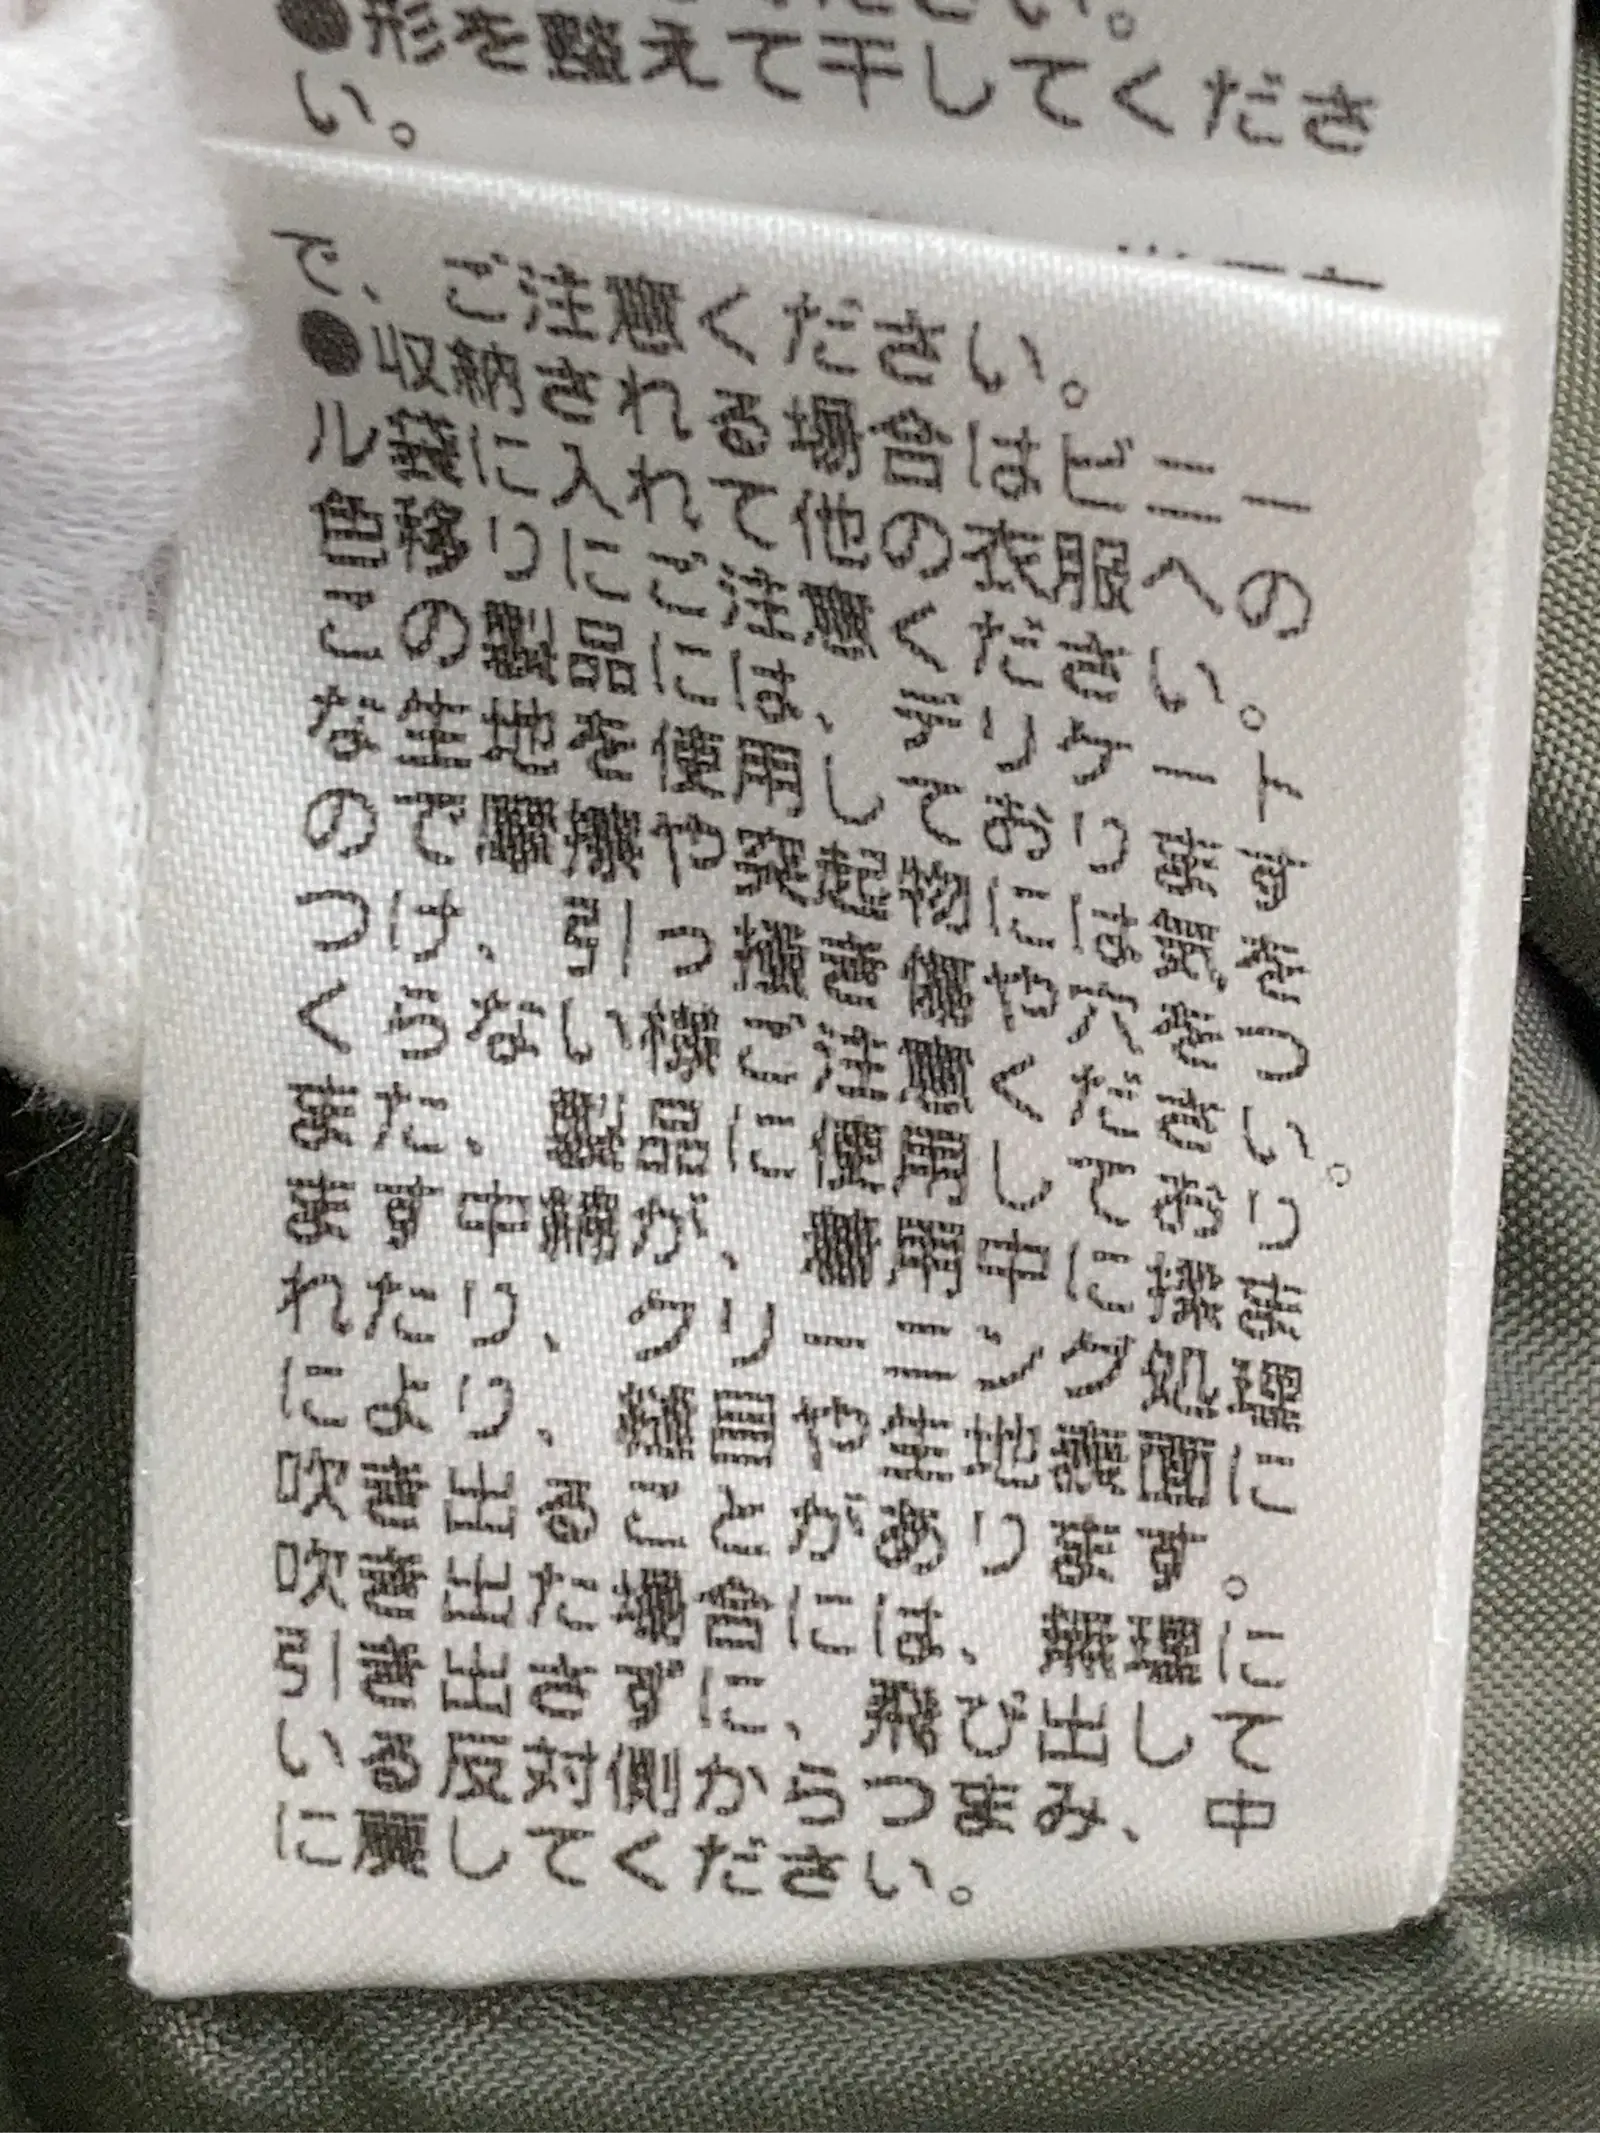 ください。
●形を整えて干してくださ
い。
で、ご注意ください。
●収納される場合はビニー
ル袋に入れて他の衣服への
色移りにご注意ください。
この製品には、デリケート
な生地を使用しております
ので摩擦や突起物には気を
つけ、引っ掻き傷や穴をつ
くらない様ご注意ください。
また、製品に使用しており
ます中綿が、着用中に揉ま
れたり、クリーニング処理
により、縫目や生地表面に
吹き出ることがあります。
吹き出た場合には、無理に
引き出さずに、飛び出して
いる反対側からつまみ、中
に戻してください。